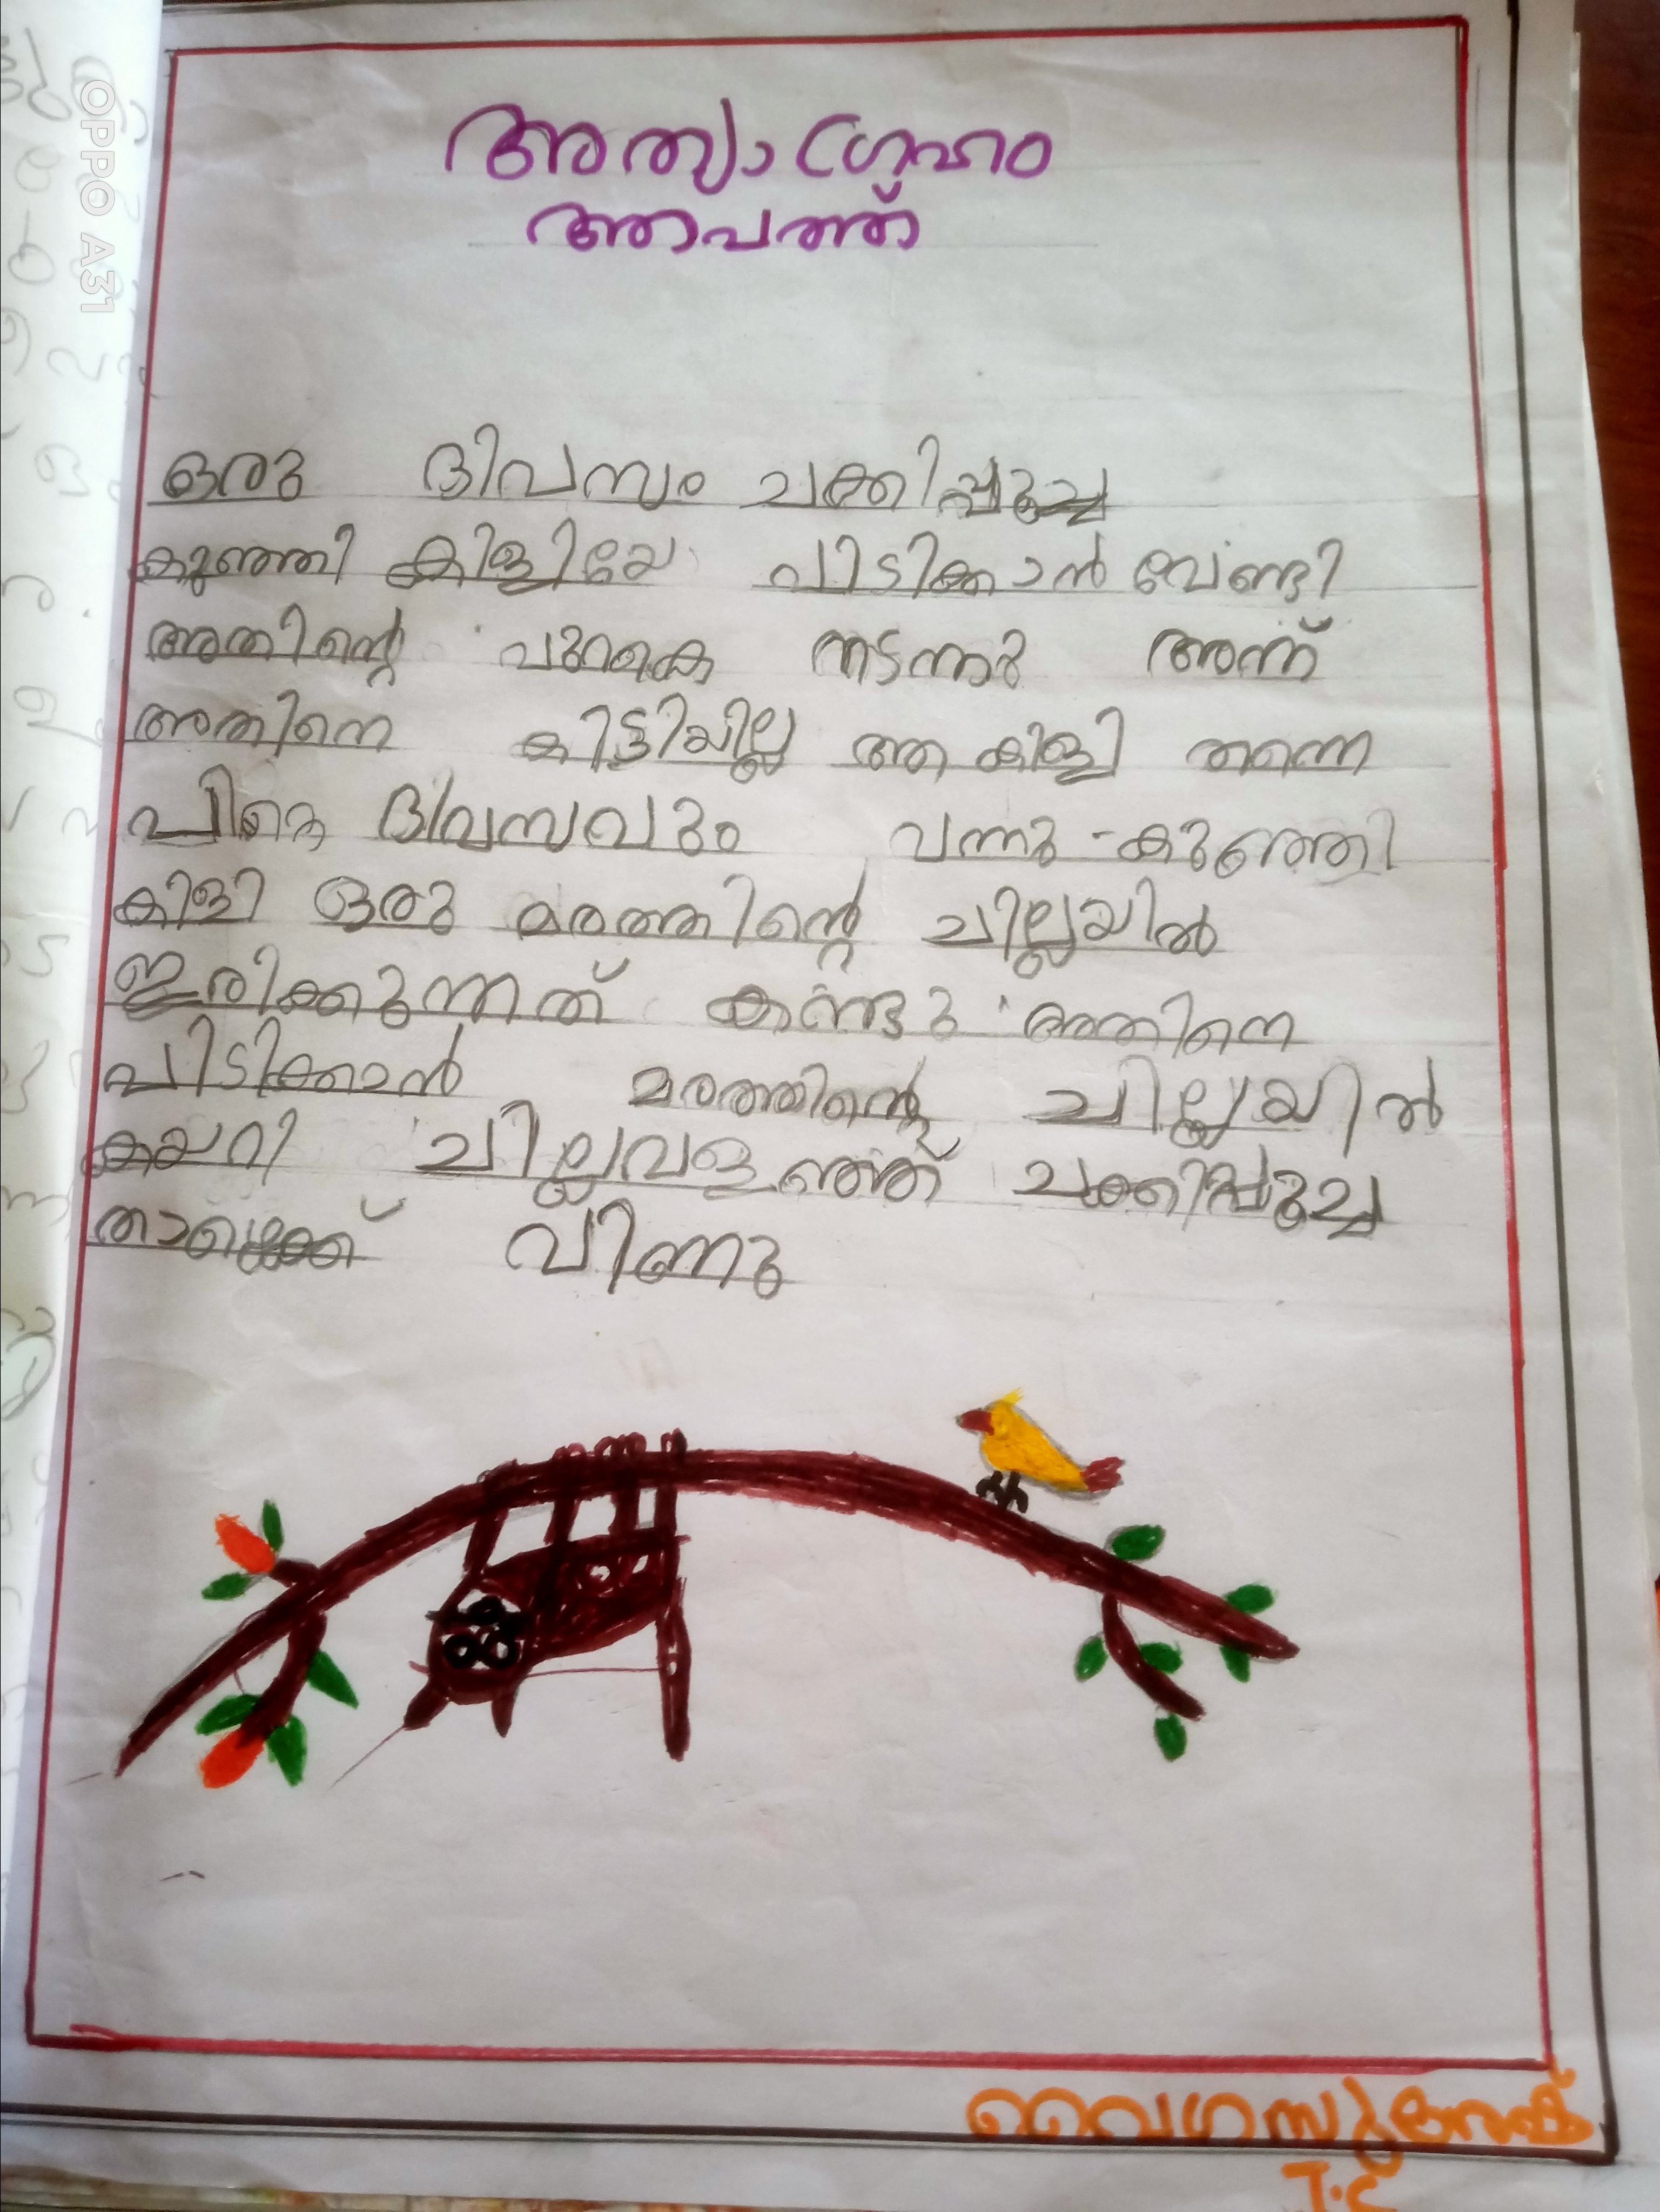 അത്യാഗ്രഹം
ആപത്ത്
ഒരു ദിവസം ചക്കിപ്പൂച്ച
കുഞ്ഞി കിളിയേ പിടിക്കാൻ വേണ്ടി
അതിന്റെ പുറകെ നടന്നു അന്ന്
അതിനെ കിട്ടിയില്ല ആ കിളി തന്നെ
ദിവസവും വന്നു കുഞ്ഞി
കിളി ഒരു മരത്തിന്റെ ചില്ലയിൽ
ഇരിക്കുന്നത് കണ്ടു അതിനെ
പിടിക്കാൻ മരത്തിന്റെ ചില്ലയിൽ
കയറി ചില്ലവളഞ്ഞ് ചക്കിപ്പൂച്ച
താഴേക്ക് വീണു
വൈഗസുരേഷ്
I.C
OPPO A31